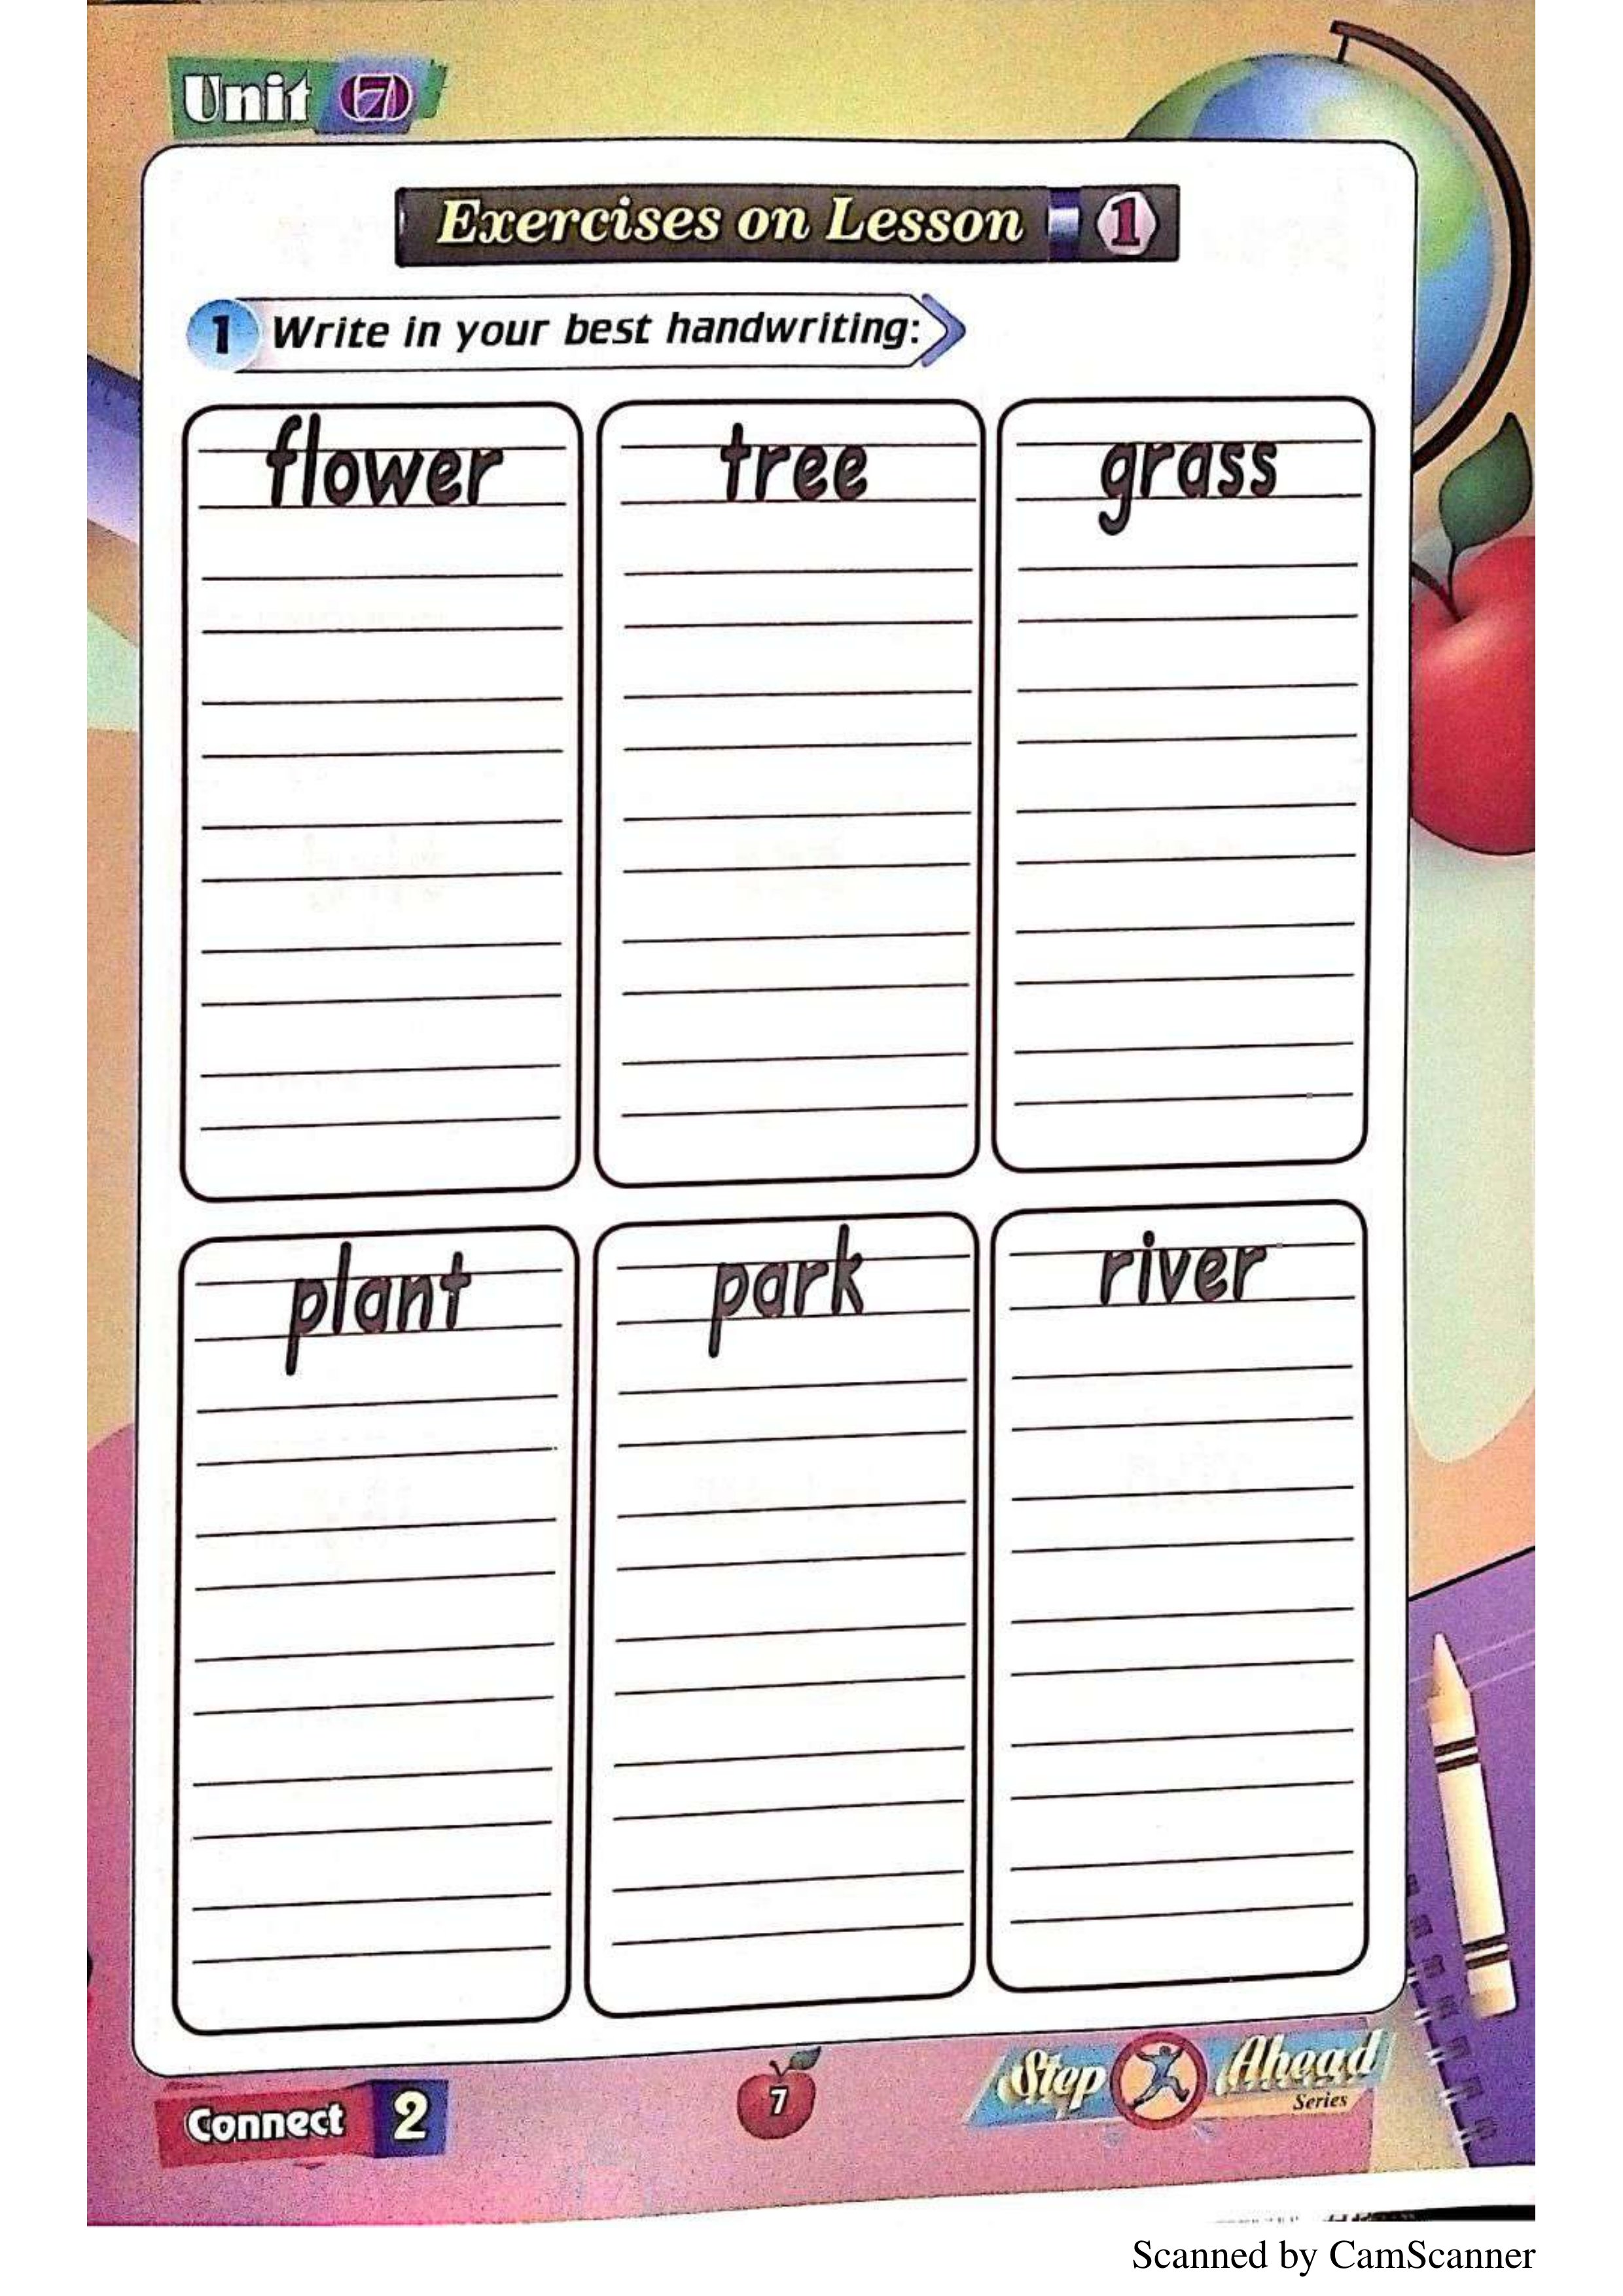 Unit 7
Exercises on Lesson 1
1 Write in your best handwriting:
flower
tree
grass
plant
park
river
Connect 2
7
Step Ahead
Series
Scanned by CamScanner